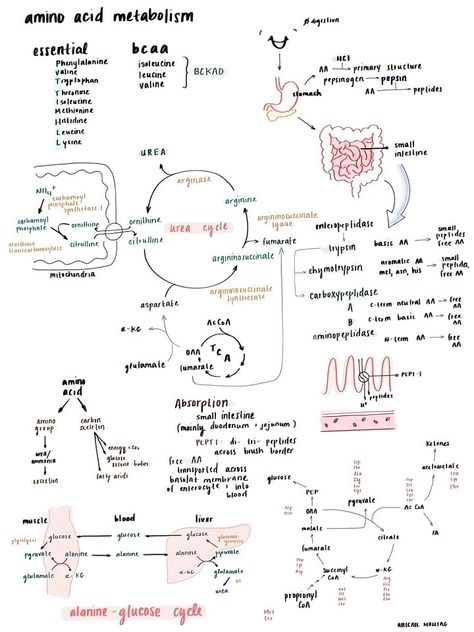 amino acid metabolism
essential
Phenylalanine
Valine
Tryptophan
Threonine
Isoleucine
Methionine
Histidine
Leucine
Lysine
bcaa
isoleucine
leucine
valine
BCKAD
digestion
stomach
HCl
AA → primary structure
pepsinogen → pepsin
AA → peptides
small
intestine
enteropeptidase
trypsin basic AA → small peptides, free AA
chymotrypsin aromatic AA → small peptides, free AA
met, asn, his
carboxypeptidase
A c-term neutral AA → free AA
B c-term basic AA → free AA
aminopeptidase N-term AA → free AA
PEPT-1
peptides
H+
NH4+
carbamoyl
phosphate
synthetase I
carbamoyl
phosphate
ornithine
citrulline
ornithine
transcarbamoylase
mitochondria
UREA
arginase
arginine
ornithine
urea cycle
citrulline
argininosuccinate
lyase
fumarate
argininosuccinate
argininosuccinate
synthetase
aspartate
α-KG
glutamate
AcCoA
OAA
TCA
fumarate
amino
acid
amino
group
urea/
ammonia
excretion
carbon
skeleton
energy + CO2
glucose
ketone bodies
fatty acids
Absorption
small intestine
(mainly duodenum + jejunum)
PEPT1: di- tri- peptides
across brush border
free AA
transported across
basolat membrane
of enterocyte + into
blood
muscle
blood
liver
glycolysis
glucose
glucose
glucose
pyruvate
alanine
alanine
alanine
pyruvate
glutamate
α-KG
α-KG
glutamate
urea
alanine-glucose cycle
glucose
PEP
OAA
malate
fumarate
succinyl
CoA
propionyl
CoA
α-KG
citrate
pyruvate
Ac CoA
acetoacetate
Ketones
FA
ABIGAIL